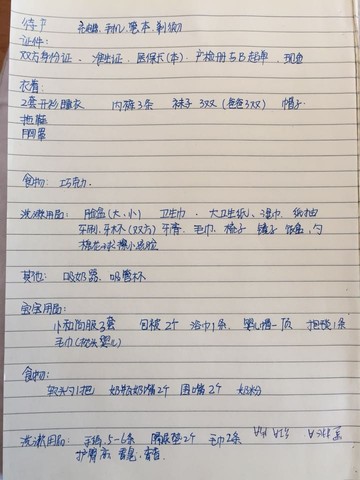 充电器、手机、笔、本、剃须刀
证件:
双方身份证、准生证、医保卡(本)、产检册与B超单、现金
衣着:
2套开衫睡衣 内裤3条 袜子3双(爸爸3双) 帽子
拖鞋
胸罩
食物: 巧克力.
洗漱用品: 脸盆(大、小) 卫生巾、大卫生纸、湿巾、纸抽
牙刷、牙杯(双方)牙膏、毛巾、梳子 镜子 饭盒、勺
棉花球擦小孩脸
其他: 吸奶器、吸管杯
宝宝用品:
小和尚服3套 包被2个 浴巾1条 婴儿帽一顶 抱毯1条
毛巾(枕头婴儿)
食物:
软头勺1把 奶瓶奶嘴2个 奶粉
洗漱用品: 手绢5-6条 隔尿垫2个 毛巾2条
护臀膏